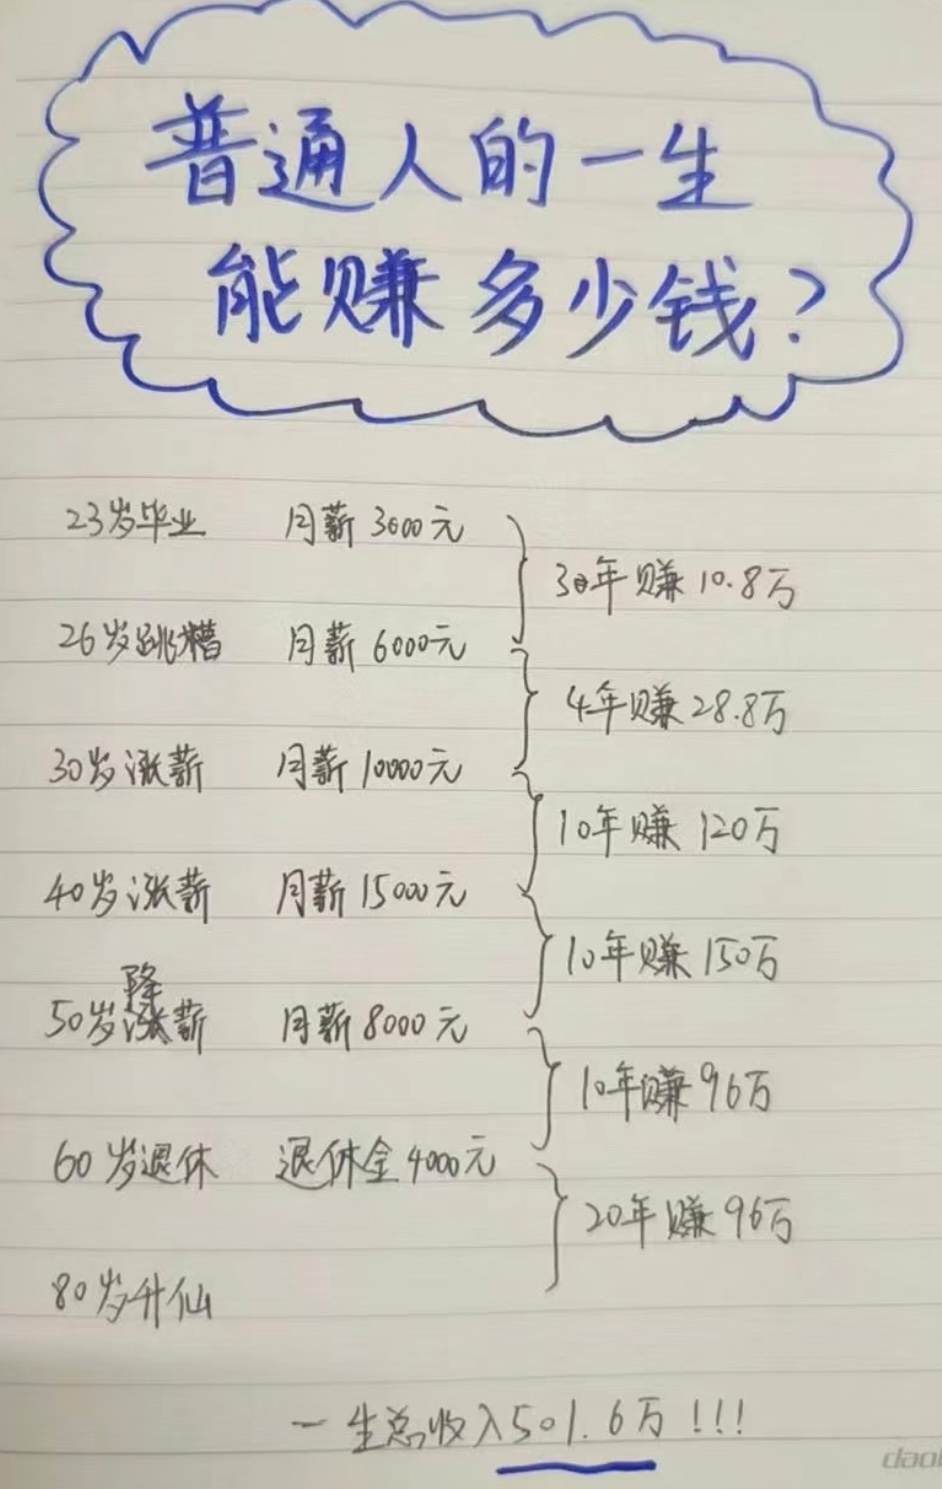 普通人的一生
能赚多少钱?
23岁毕业 月薪3000元
3年赚10.8万
26岁跳槽 月薪6000元
4年赚28.8万
30岁涨薪 月薪10000元
10年赚120万
40岁涨薪 月薪15000元
10年赚150万
50岁降薪 月薪8000元
10年赚96万
60岁退休 退休金4000元
20年赚96万
80岁升仙
一生总收入501.6万!!!